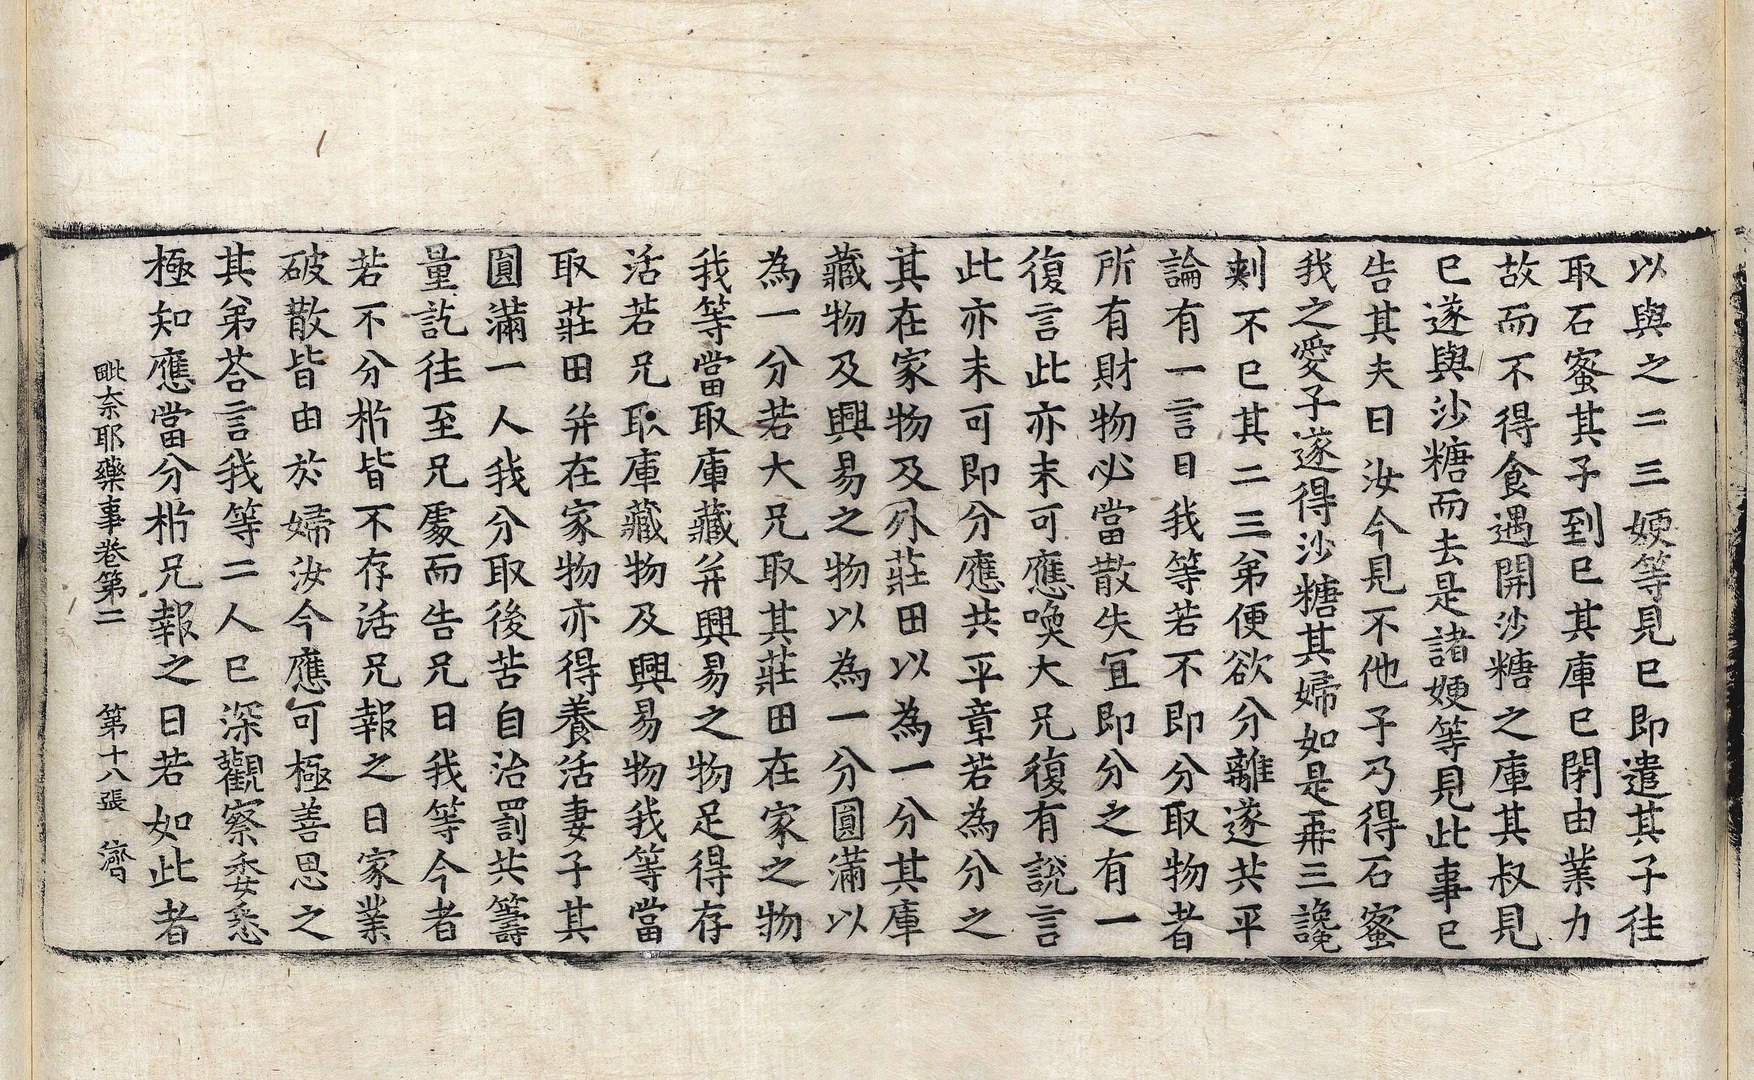 以與之二三㛐等見巳即遣其子往
取石蜜其子到巳其庫巳閇由業力
故而不得食遇開沙糖之庫其叔見
巳遂與沙糖而去是諸㛐等見此事巳
告其夫曰汝今見不他子乃得石蜜
我之愛子遂得沙糖其婦如是再三讒
刾不巳其二三弟便欲分離遂共平
論有一言曰我等若不即分取物者
所有財物必當散失冝即分之有一
復言此亦未可應喚大兄復有說言
此亦未可即分應共平章若為分之
其在家物及外莊田以為一分其庫
藏物及興易之物以為一分圓滿以
為一分若大兄取其莊田在家之物
我等當取庫藏并興易之物足得存
活若兄取庫藏物及興易物我等當
取莊田并在家物亦得養活妻子其
圓滿一人我分取後苦自治罰共籌
量訖往至兄處而告兄曰我等今者
若不分析皆不存活兄報之曰家業
破散皆由於婦汝今應可極善思之
其弟荅言我等二人巳深觀察委悉
極知應當分析兄報之曰若如此者
毗奈耶藥事卷第二 第十八張 濟